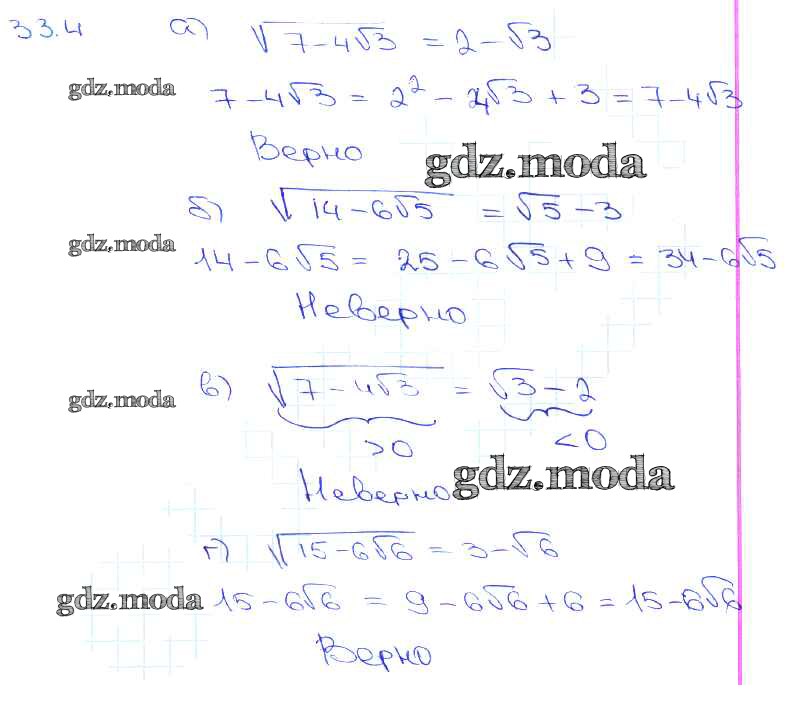 33.4 а) √(7-4√3) = 2-√3
gdz.moda 7-4√3 = 2² - 4√3 + 3 = 7-4√3
Верно gdz.moda
б) √(14-6√5) = √5-3
gdz.moda 14-6√5 = 25-6√5+9 = 34-6√5
Неверно
gdz.moda в) √(7-4√3) = √3-2
>0 <0
Неверно gdz.moda
г) √(15-6√6) = 3-√6
gdz.moda 15-6√6 = 9-6√6+6 = 15-6√6
Верно